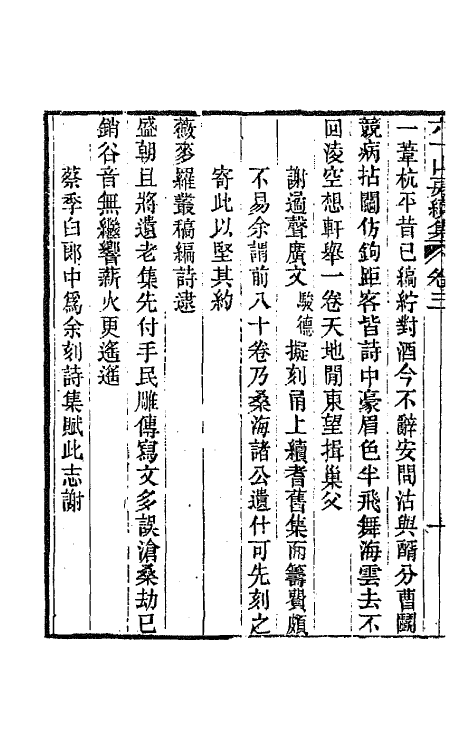 六一山房續集 卷三 十
一葦杭平昔已縞紵對酒今不辭安問沽與酤分曹鬭
競病拈鬮仿鉤距客皆詩中豪眉色半飛舞海雲去不
回淩空想軒舉一卷天地閒東望揖巢父
謝逈聲廣文駿德擬刻甬上續耆舊集而籌費頗
不易余謂前八十卷乃桑海諸公遺什可先刻之
寄此以堅其約
薇麥羅叢稿編詩逮
盛朝且將遺老集先付手民雕傳寫文多誤滄桑劫已
銷谷音無繼響薪火更遙遙
蔡季白郎中爲余刻詩集賦此志謝